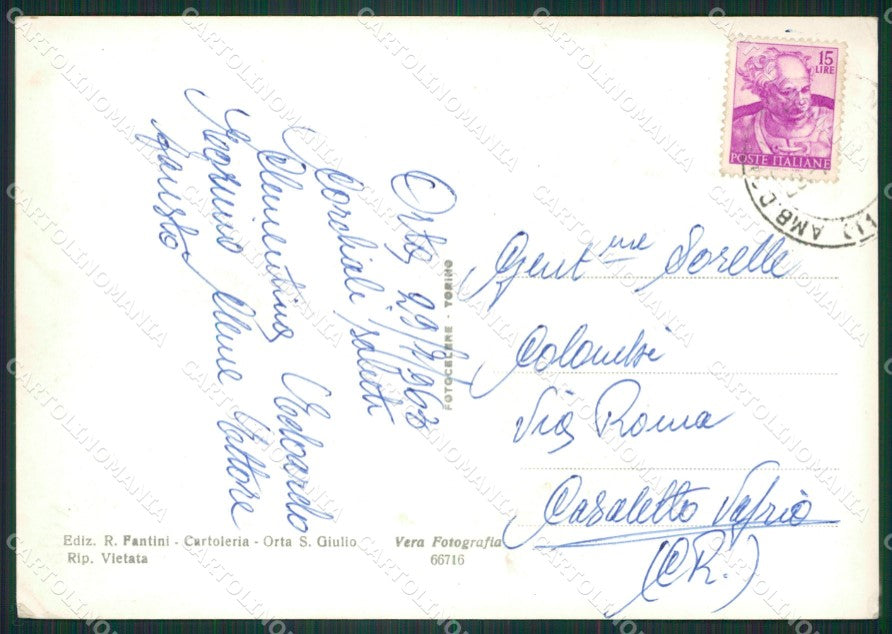 15
LIRE
POSTE ITALIANE
AMB.
Orta 29/7/963
Cordiali saluti
Clementina Edoardo
Ettore
Gent.me Sorelle
Colombi
Via Roma
Casaletto Vaprio
(CR.)
FOTOCELERE - TORINO
Ediz. R. Fantini - Cartoleria - Orta S. Giulio
Rip. Vietata
Vera Fotografia
66716
CARTOLINOMANIA